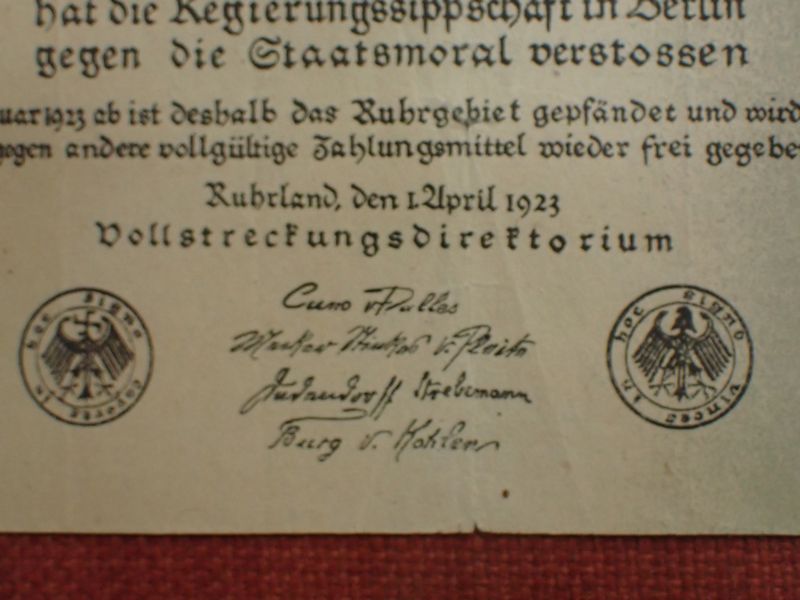 hat die Regierungssippschaft in Berlin
gegen die Staatsmoral verstossen
uar 1923 ab ist deshalb das Ruhrgebiet gepfändet und wird
gegen andere vollgültige Zahlungsmittel wieder frei gegebe
Ruhrland, den 1. April 1923
Vollstreckungsdirektorium
Cuno
v.
Judendorff Strebemann
Burg v. Kohlen
hoc signo in
hoc signo vinces in